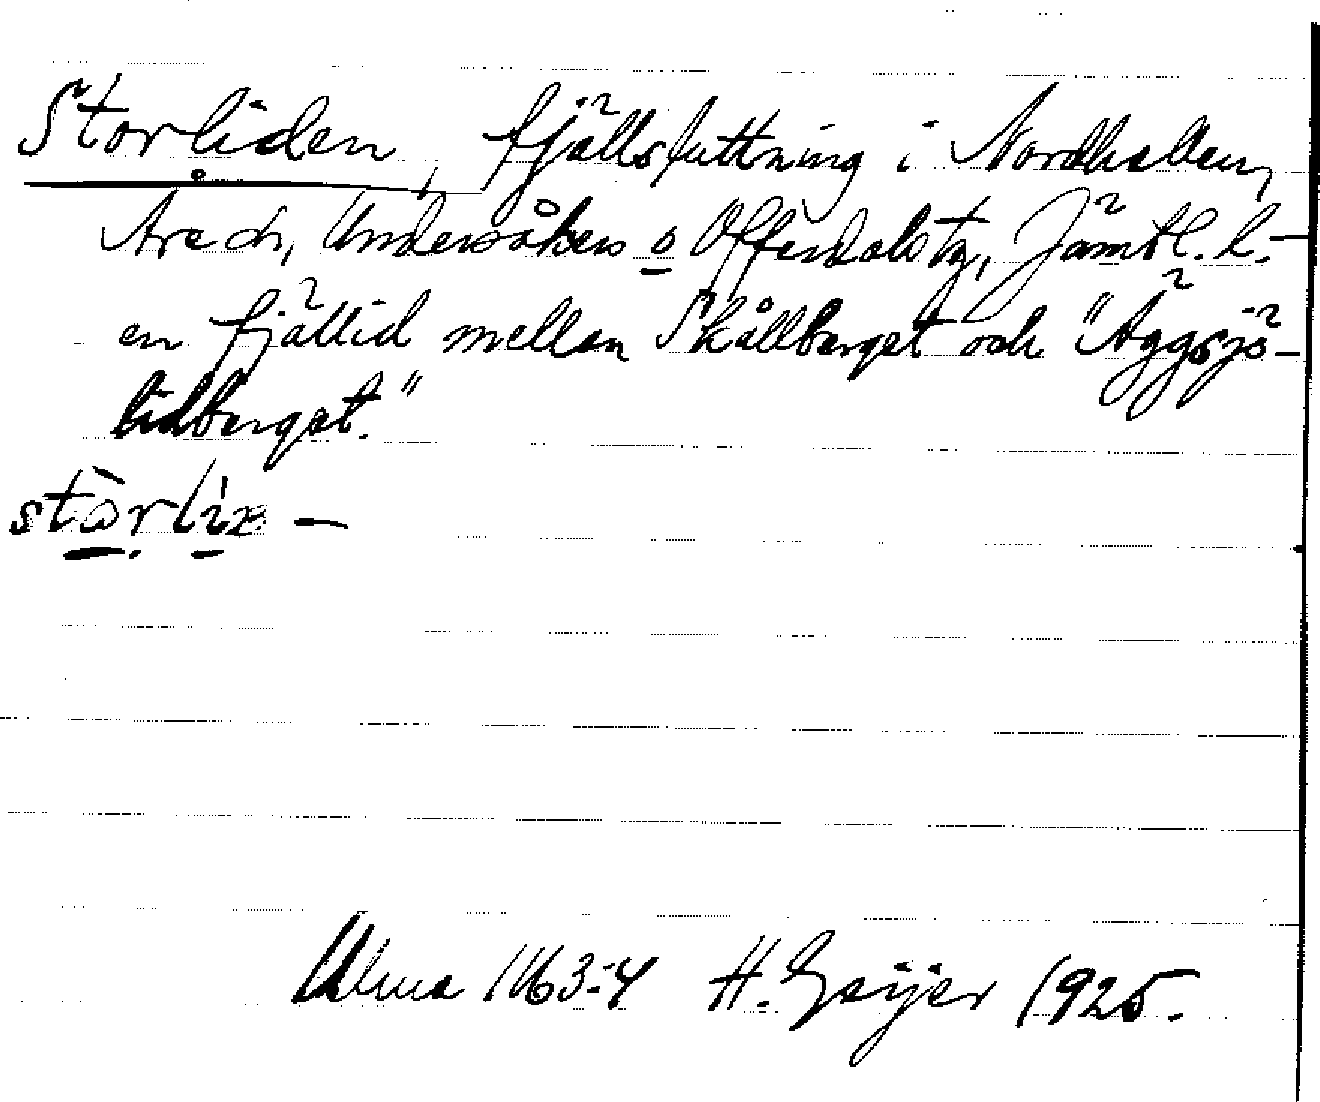 Storliden, fjällsluttning i Nordhallen,
Åre ch, Undersåkers o Offerdals tg, Jämtl. l. –
en fjällid mellan Skållberget och "Äggsjö-
lidberget."
stòrlìæ –
Ulma 1163:4 H. Geijer 1925.